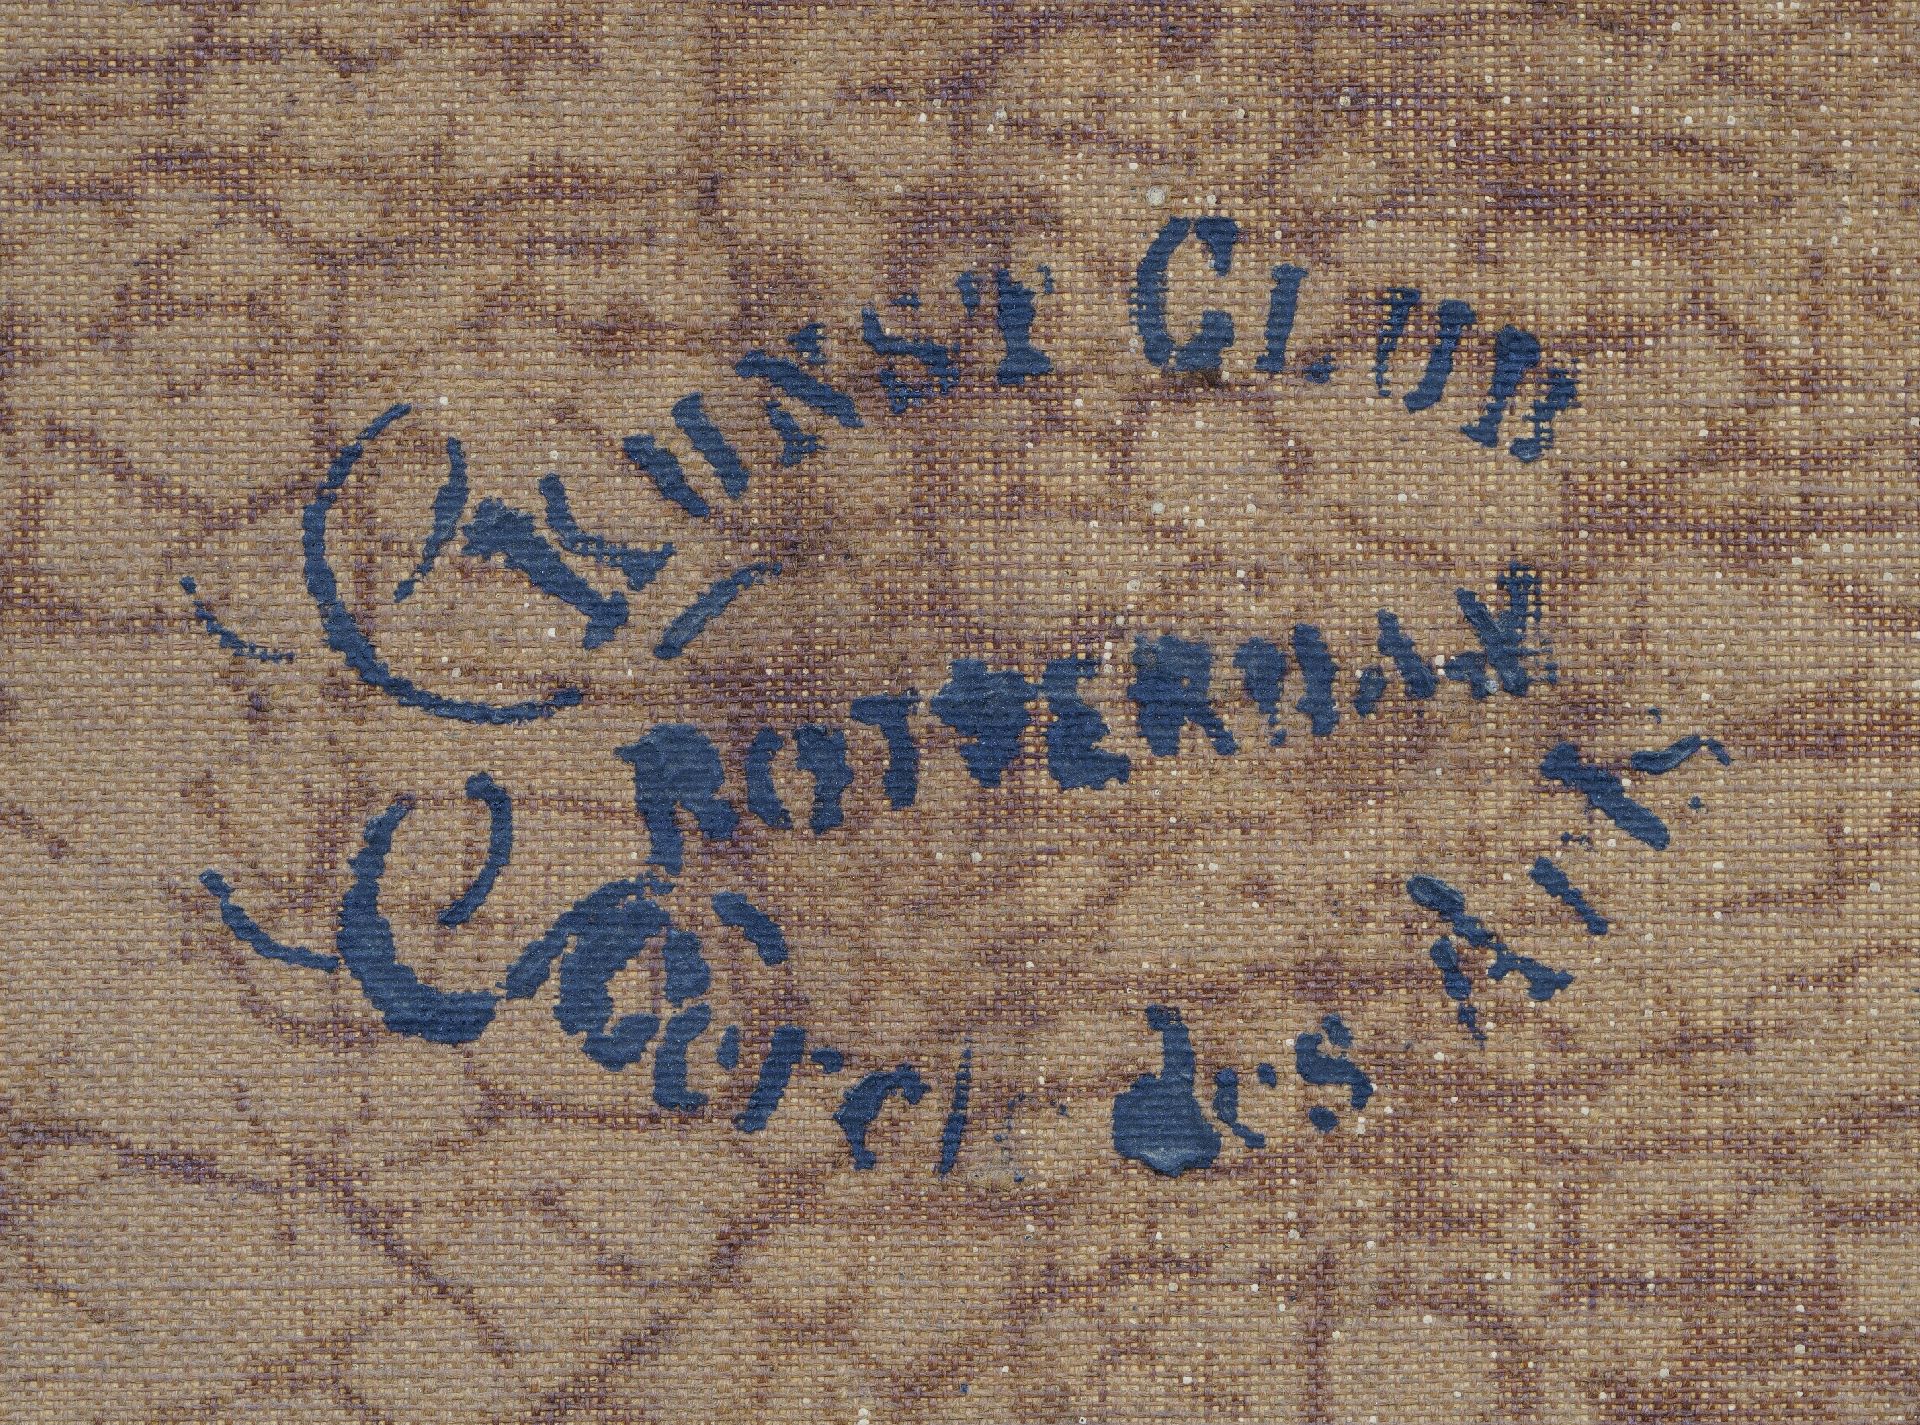 KUNST CLUB
ROTTERDAM
Cercle des Arts